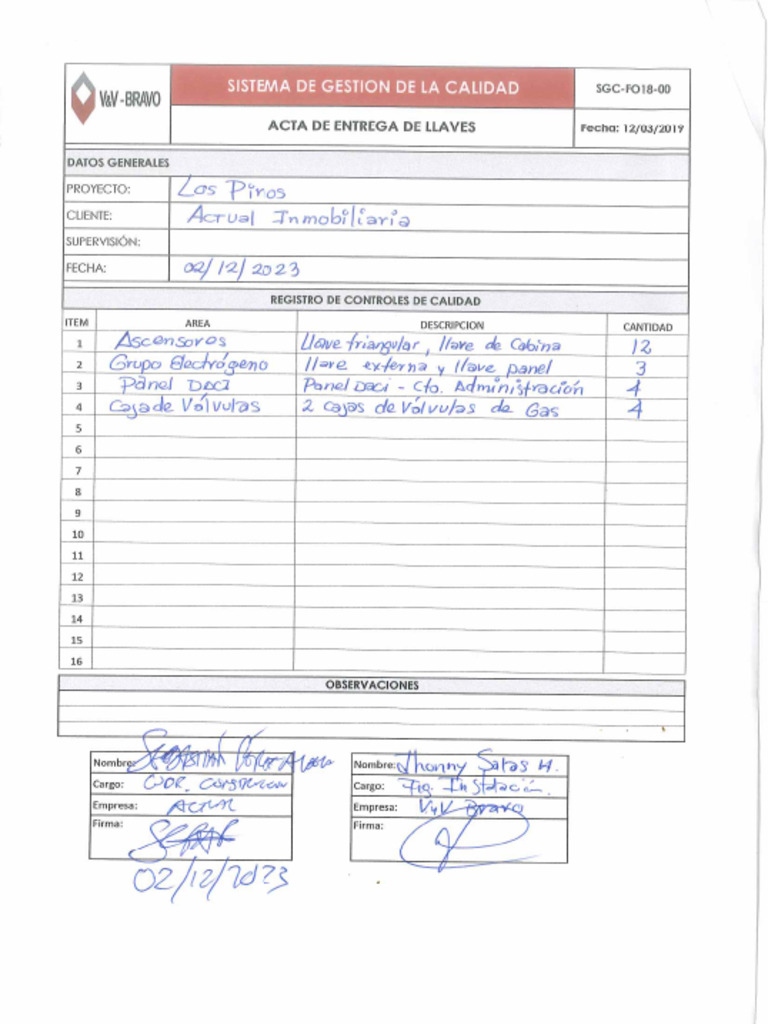 V&V - BRAVO
SISTEMA DE GESTION DE LA CALIDAD
SGC-FO18-00
ACTA DE ENTREGA DE LLAVES
Fecha: 12/03/2019
DATOS GENERALES
PROYECTO: Los Piros
CLIENTE: Actual Inmobiliaria
SUPERVISIÓN:
FECHA: 02/12/2023
REGISTRO DE CONTROLES DE CALIDAD
ITEM AREA DESCRIPCION CANTIDAD
1 Ascensores Llave triangular, llave de Cabina 12
2 Grupo Electrógeno llave externa y llave panel 3
3 Panel Daci Panel Daci - Cto. Administración 4
4 Caja de Válvulas 2 cajas de Válvulas de Gas 4
5
6
7
8
9
10
11
12
13
14
15
16
OBSERVACIONES
Nombre: Sebastián
Cargo:
Empresa: Actual
Firma:
02/12/2023
Nombre: Jhonny Salas H.
Cargo: Ing. Instalación.
Empresa: V y V Bravo
Firma: